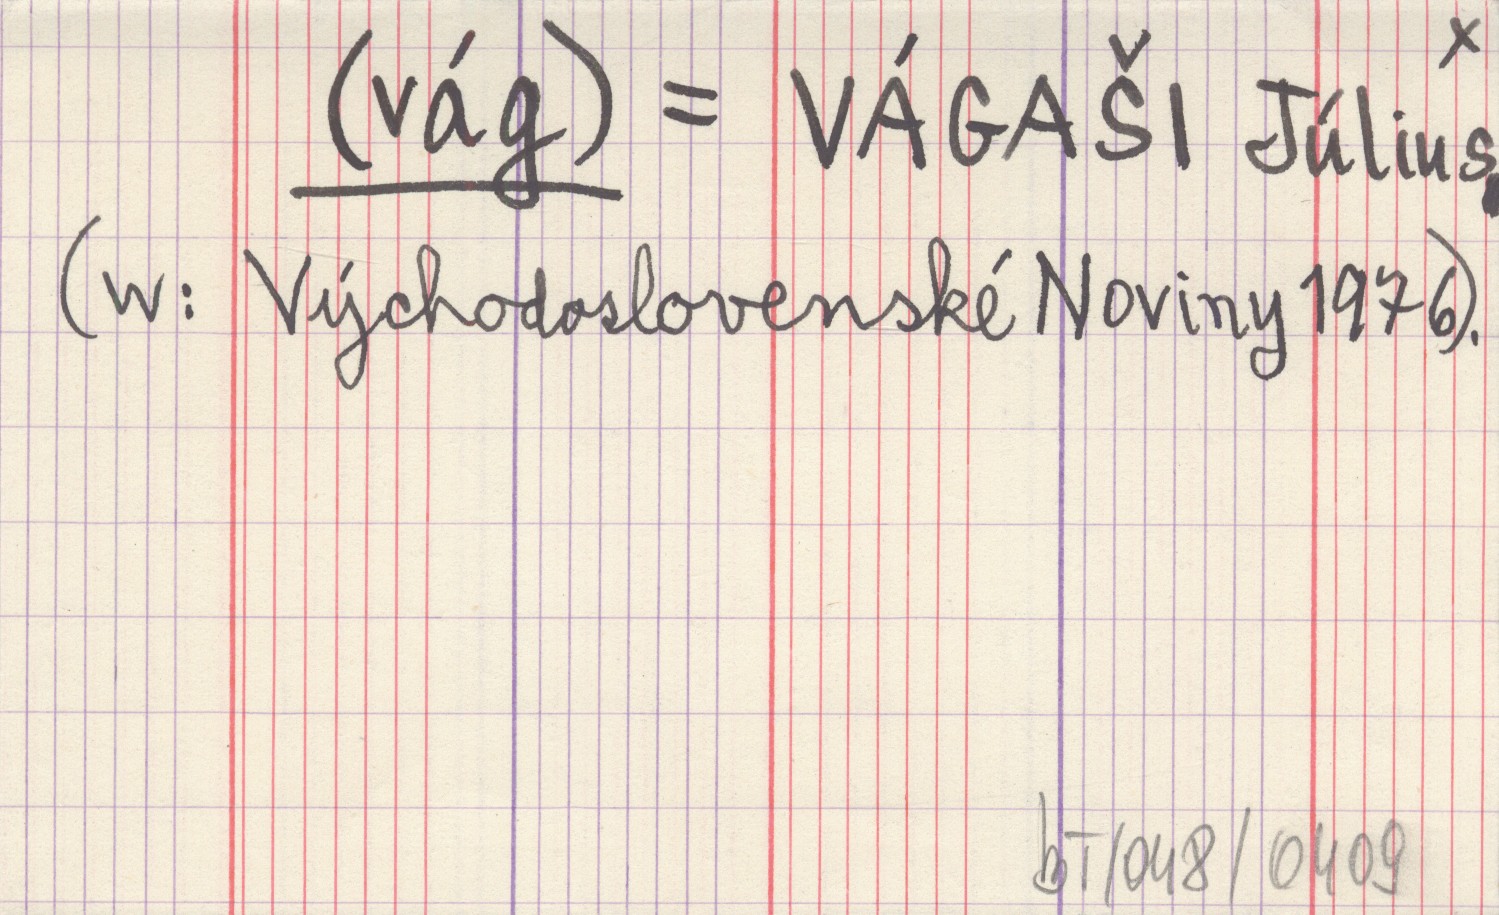 x
(vág) = VÁGAŠI Július.
(w: Východoslovenské Noviny 1976).
bT/048/0409